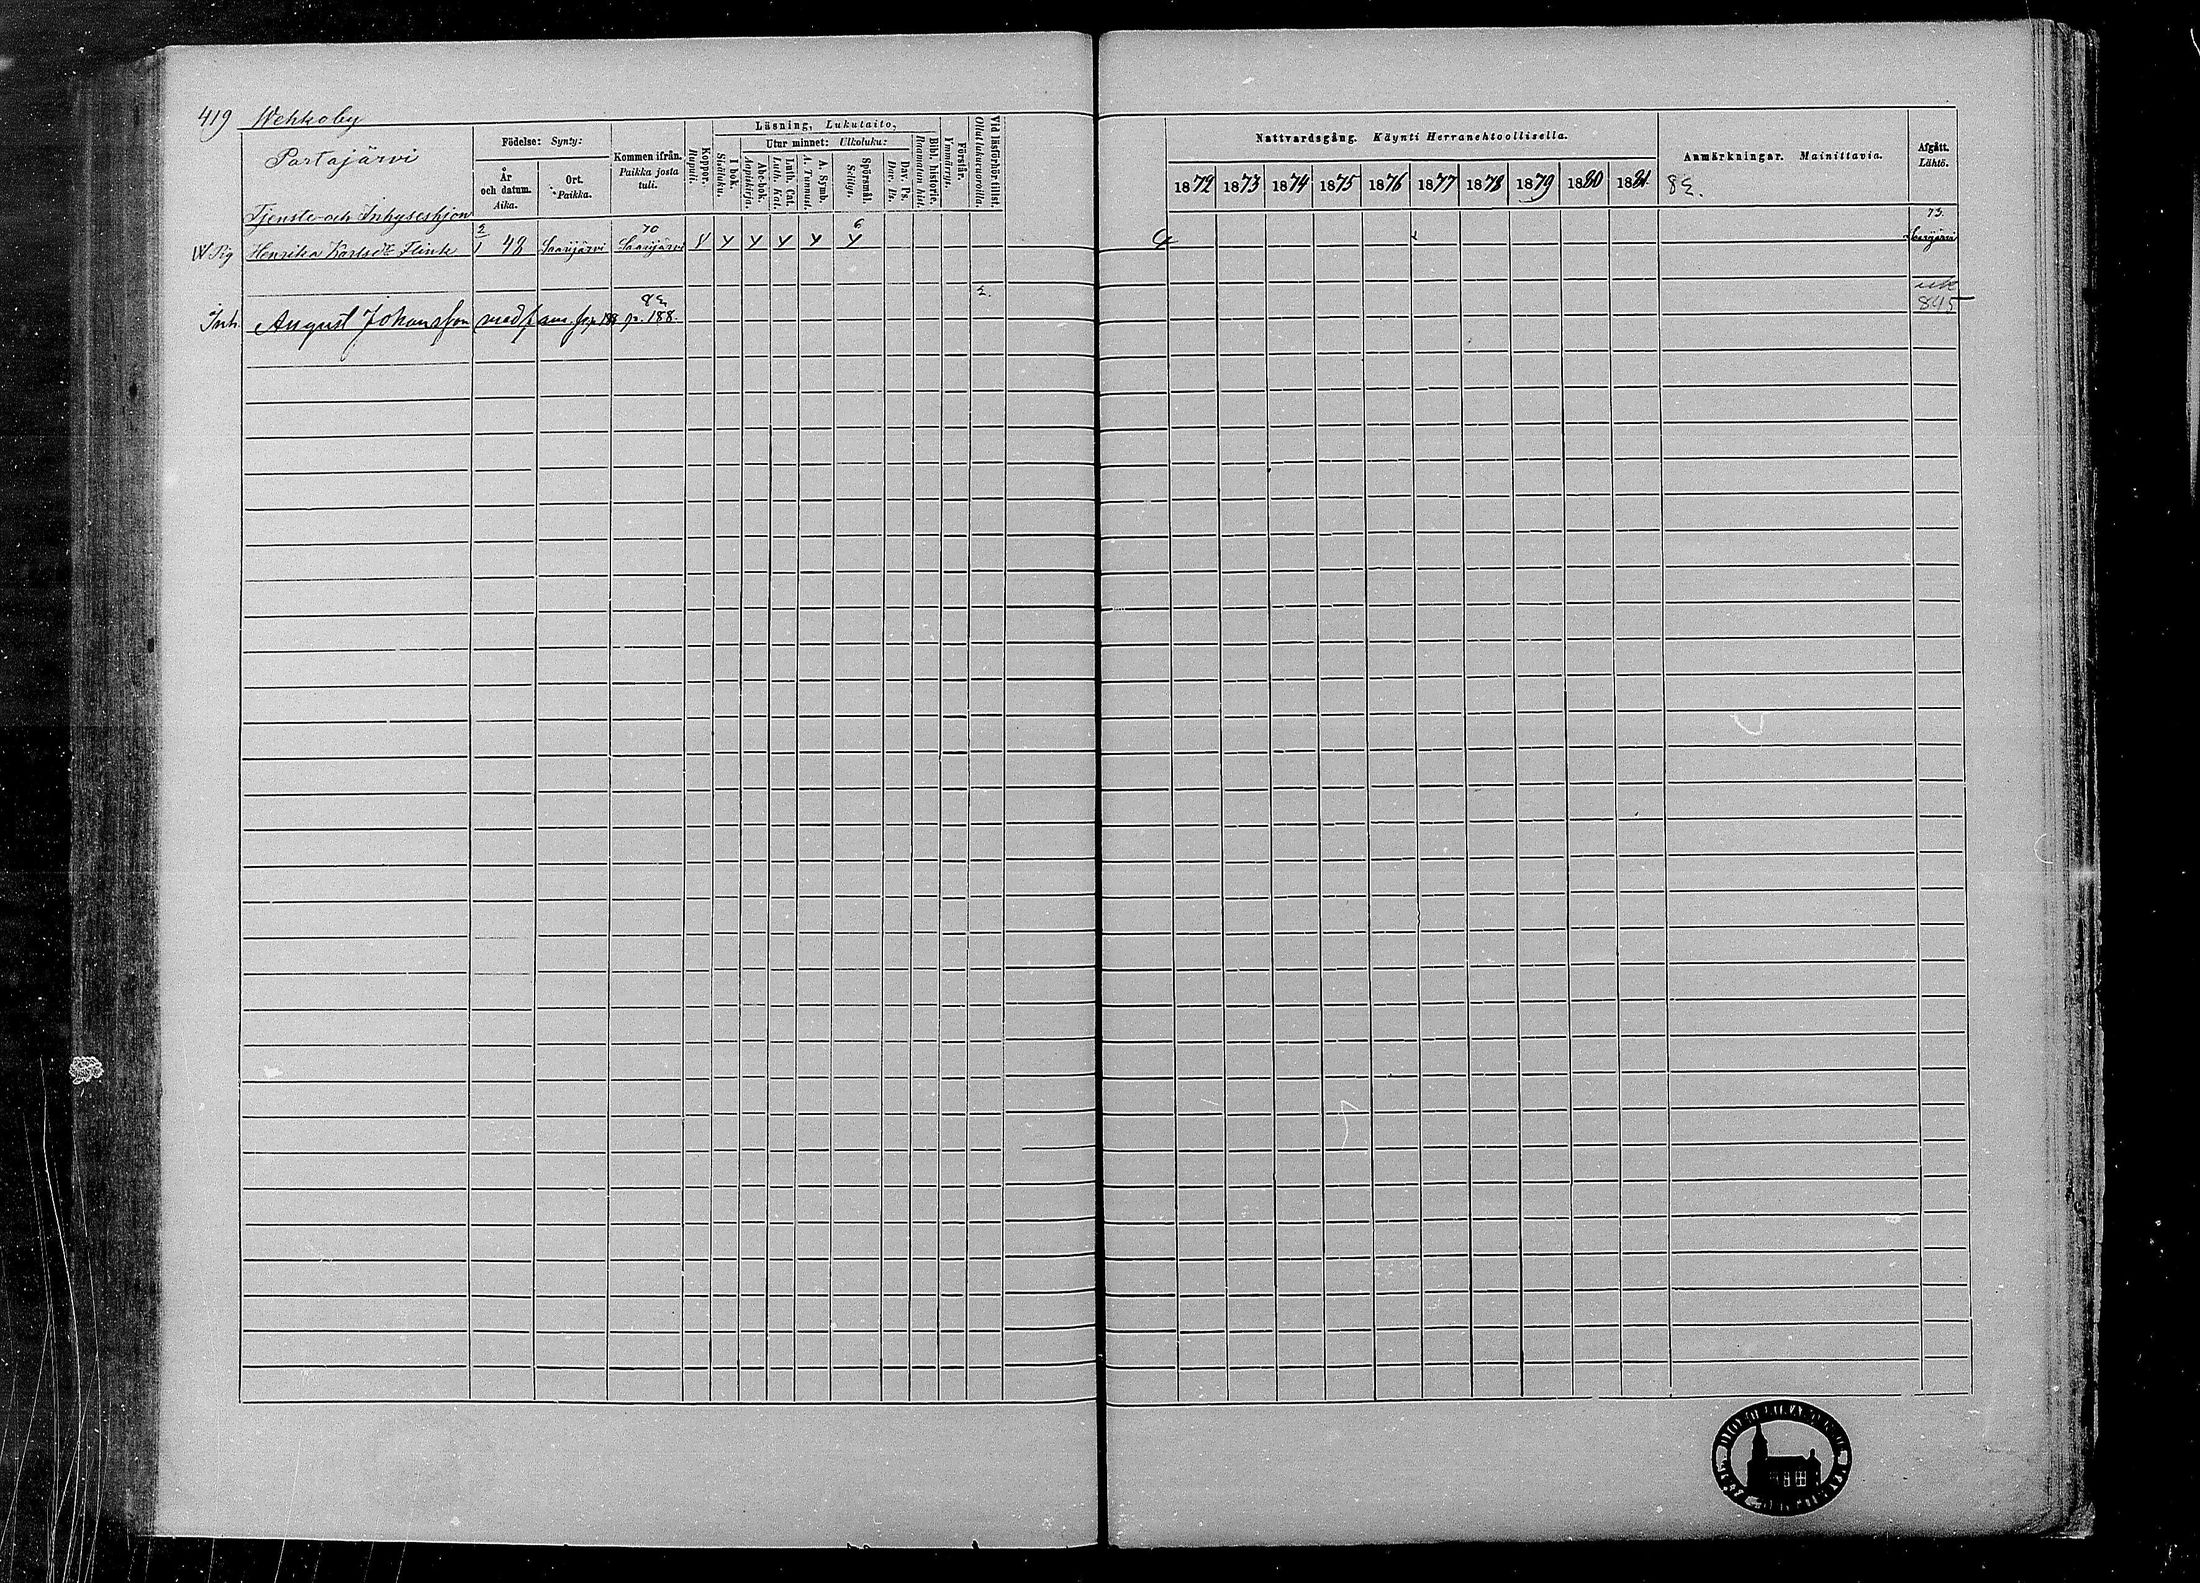 419 Wehkoby
Partajärvi
Födelse: Synty:
År och datum. Aika.
Ort. Paikka.
Kommen ifrån. Paikka josta tuli.
Koppor. Rupuli.
Läsning, Lukutaito,
I bok. Sisäluku.
Utur minnet: Ulkoluku:
Abc-bok. Aapiskirja.
Luth. Cat. Luth. Kat.
A. Symb. A. Tunnust.
Spörsmål. Selitys.
Dav. Ps. Dav. Ps.
Bibl. historie. Raamatun hist.
Förstår. Ymmärrys.
Vid läsförhör tillst. Ollut lukuvuoroilla.
Nattvardsgång. Käynti Herranehtoollisella.
1872 1873 1874 1875 1876 1877 1878 1879 1880 1881
Anmärkningar. Mainittavia.
82.
Afgått. Lähtö.
Tjenste- och Inhyseshjon
Pig Henrika Karlsdr Flink 2/1 48 Saarijärvi 70 Saarijärvi 73. Saarijärvi
Inh. August Johansson med fam. fr. p. 188 82 p. 188. 845